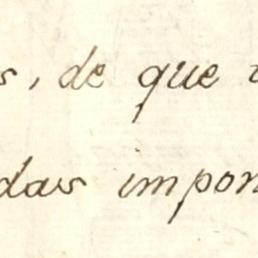 s, de que
das impor